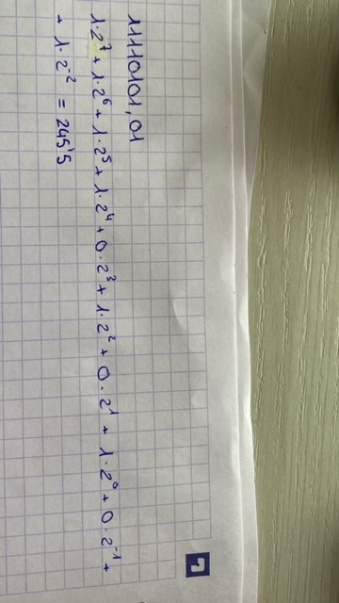 11110101,01
1·2⁷+1·2⁶+1·2⁵+1·2⁴+0·2³+1·2²+0·2¹+1·2⁰+0·2⁻¹+
+1·2⁻²=245'5